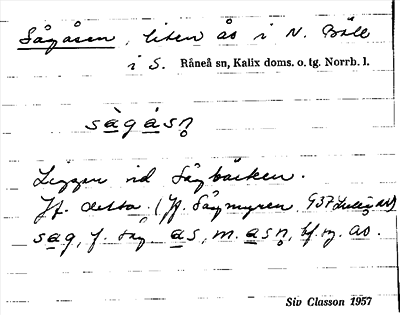 Sågåsen, liten ås i N. Böle
i S. Råneå sn, Kalix doms. o. tg. Norrb. l.
sàgásn̥
Ligger vid Sågbäcken.
Jf. detta. (Jf. Sågmyren G37 Luleå
sag, f. såg as, m. asn̥, bf. sg. ås.
Siv Classon 1957